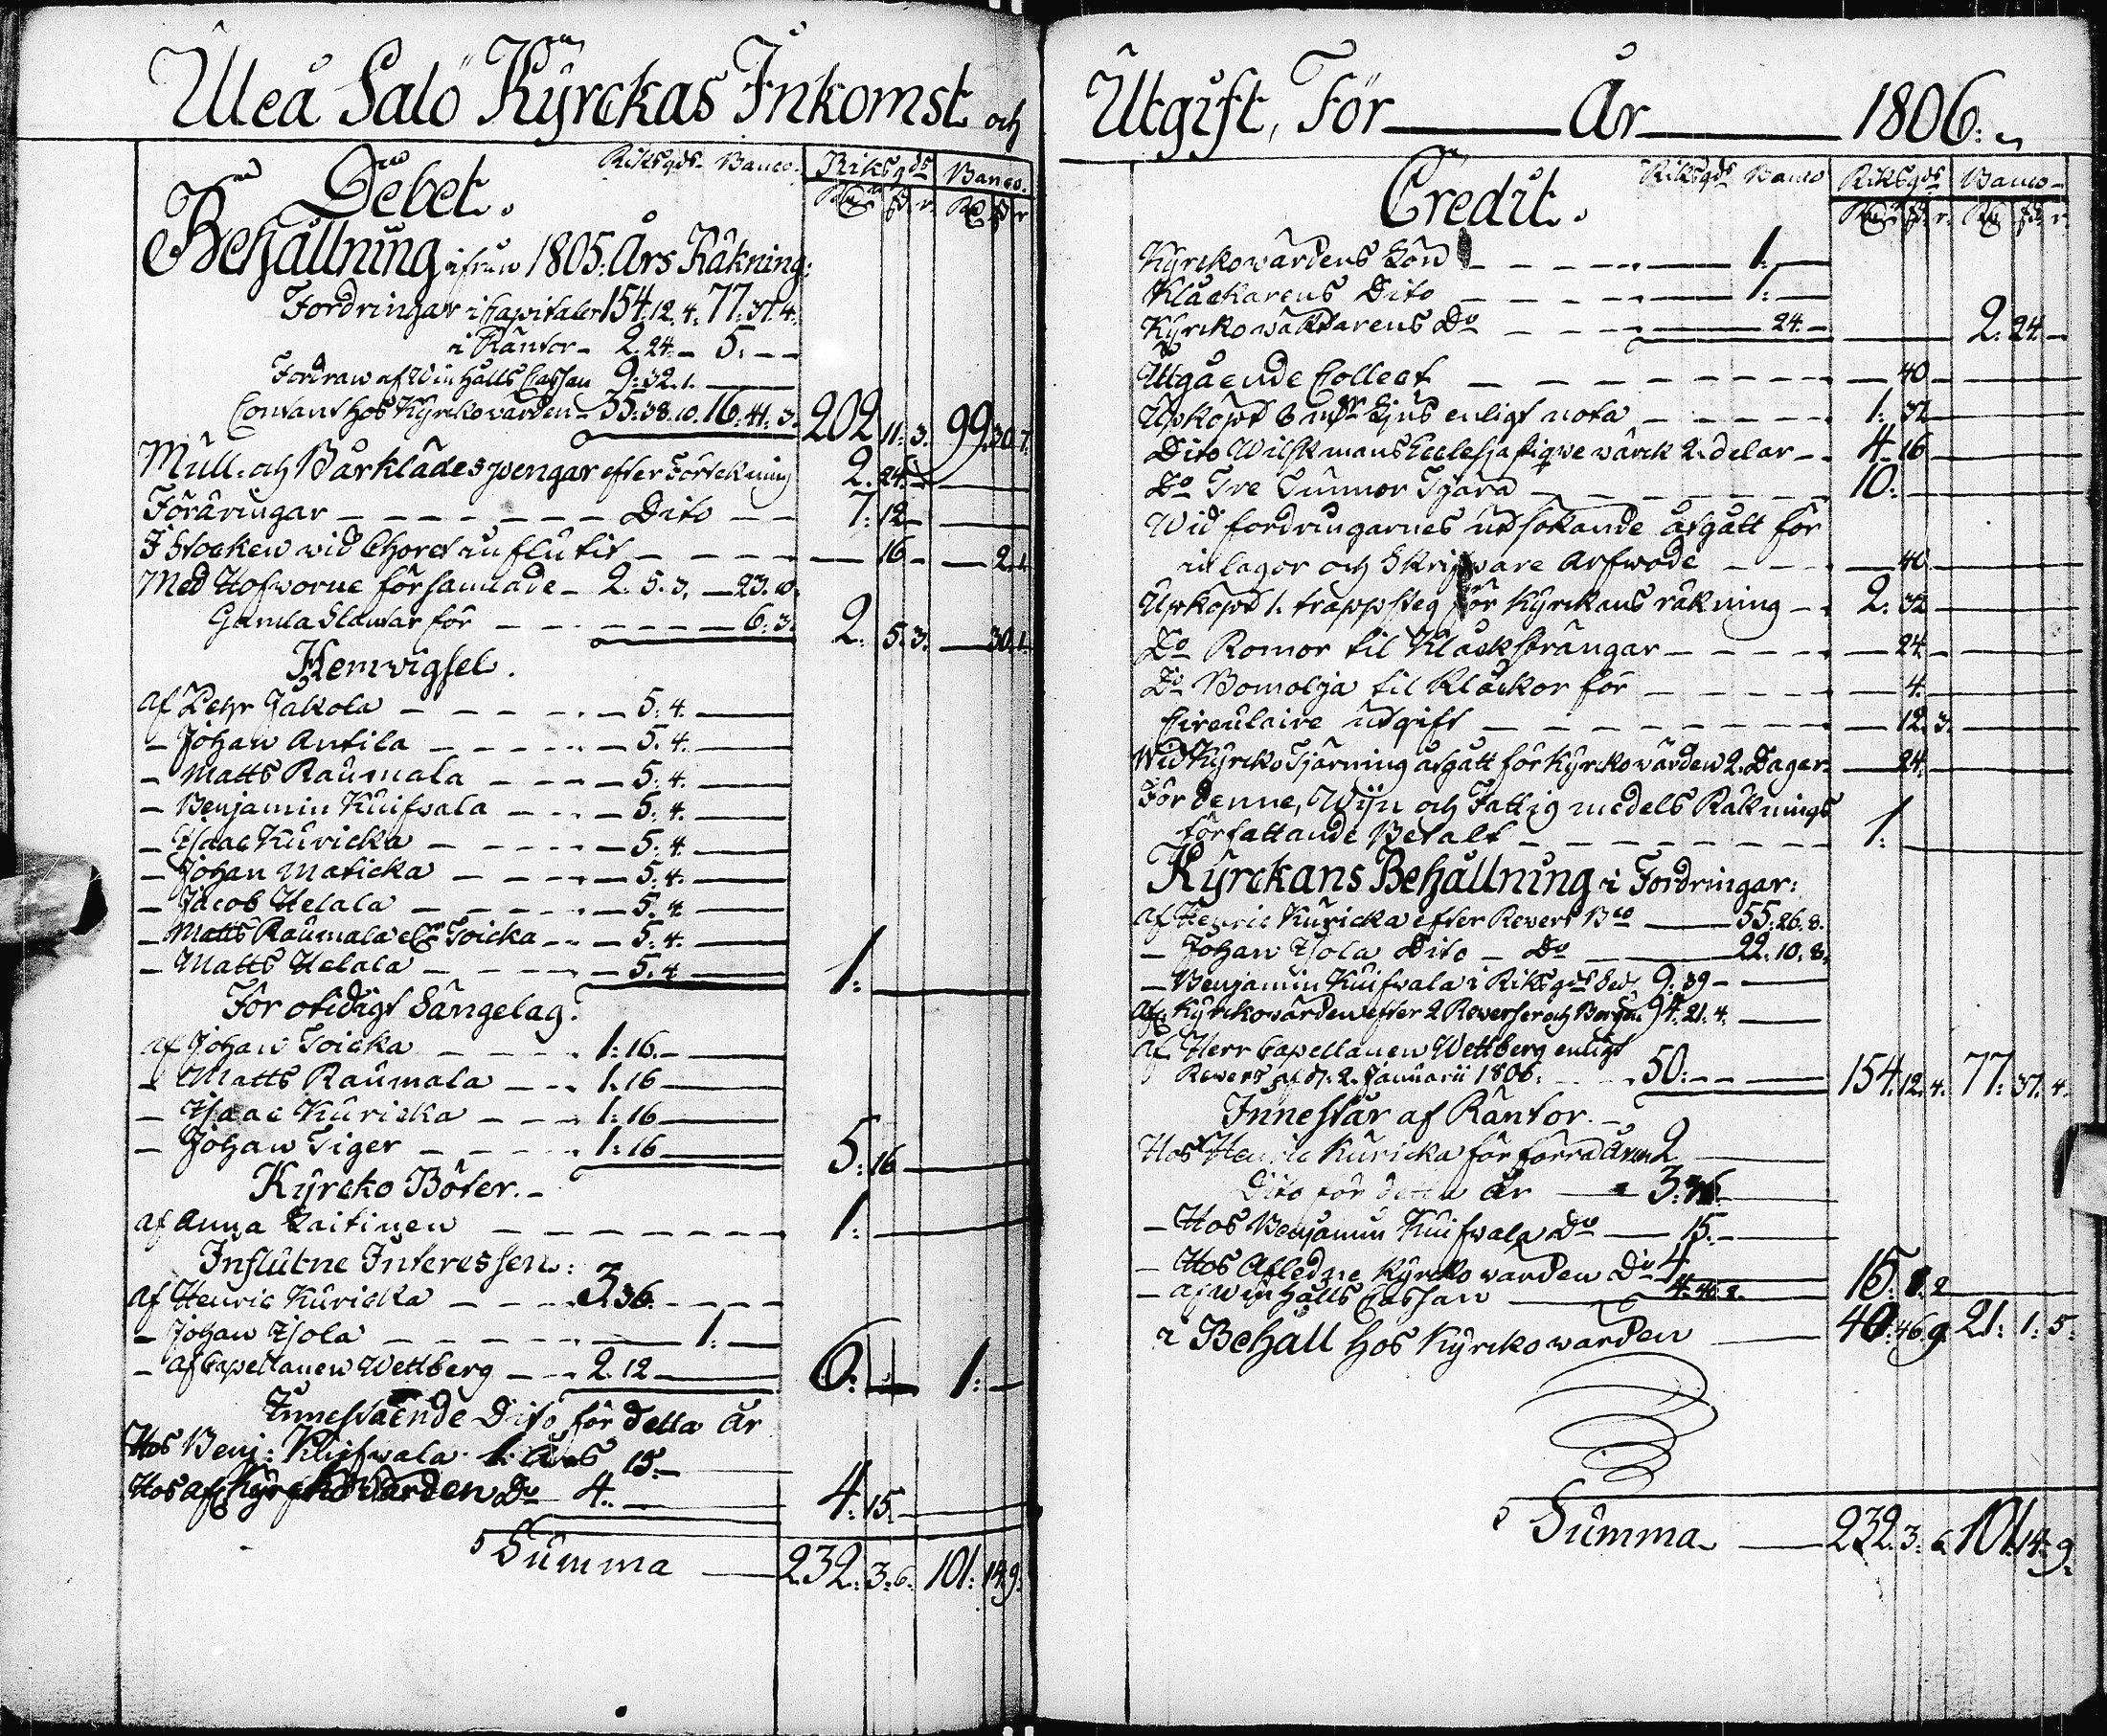 Uleå Salo Kyrckas Inkomst och
Debet. Riksgds Banco. Riksgds Banco.
Behållning ifrån 1805: Års Räkning:
Fordringar i Capitaler 154. 12. 4. 77. 37. 4.
i Räntor - 2. 24. - 5. - -
Fordran af Winhålls Cassan 9: 32. 1.
Contant hos Kyrkowärden - 35: 38. 10. 16: 41: 3. 202 11: 3. 99. 30. 7.
Mull- och Bårklädes pengar efter Förtekning 2. 24. -
Föräringar - - - Dito - - 7: 12 -
I Stocken wid Choret influtit - - - 16 - 2. 1.
Med Hofworne församlade - 2. 5. 3. - 23. 10.
Gamla Slantar för - - - 6: 3. 2. 5. 3. 30. 1.
Hemvigsel.
af Pehr Jakola - - - 5: 4.
- Johan Antila - - - 5. 4.
- Matts Raumala - - - 5: 4.
- Benjamin Kuifwala - - - 5: 4.
- Isaac Kuricka - - - 5: 4.
- Johan Maticka - - - 5: 4.
- Jacob Helala - - - 5. 4.
- Matts Raumala Toicka - - 5: 4.
- Matts Helala - - - 5. 4. 1:
För otidigt Sängelag.
af Johan Toicka - - - 1: 16. -
- Matts Raumala - - - 1: 16
- Isaac Kuricka - - - 1: 16
- Johan Tiger - - - 1: 16 5: 16
Kyrcko Böter. -
af Anna Laitinen - - - 1:
Influtne Interessen:
af Henric Kuricka - - - 3. 36.
- Johan Isola - - - 1:
- af Capellanen Wettberg - - 2. 12 6: - 1: -
Innestående Dito för detta år
Hos Benj: Kuifwala 1. års 15: -
Hos afl. Kyrckowärden Do 4. - 4: 15. -
Summa - 232. 3. 6. 101: 14. 9.
Utgift, För År 1806.
Credit. Riksgds Banco Riksgds Banco
Kyrckowärdens Lön - - - 1:
Klåckarens Dito - - - 1:
Kyrckowäktarens Do - - - 24. - 2: 24 -
Utgående Collect - - - 40 -
Upköpt 6 Ljus enligt nota - - - 1: 32
Dito Wilskmans Ecclesiastique wärck 2. delar - 4. 16
Do Tre Tunnor Tjära - - - 10:
Wid fordringarnes utsökande åtgått för
inlagor och Skrifware Arfwode - - - 40
Upköpt 1. trappsteg för Kyrckans räkning - 2: 32
Do Romor til Klåcksträngar - - - 24. -
Do Bomolja til Klåckor för - - - 4.
Circulaire utgift - - - 12. 3.
Wid Kyrcko Tjärning åtgått för Kyrckowärden 2. Dagar. 24.
För denne, Wijn och Fattig medels Räknings
författande Betalt - - - 1:
Kyrckans Behållning i Fordringar:
af Henric Kuricka efter Revers Bco 55: 26. 8.
- Johan Isola Dito - Do 22. 10: 8.
- Benjamin Kuifwala i Riksgds Sed. 9: 39 -
Afl. Kyrckowärden efter 2 Reverser och Borgen 94. 21. 4.
af Herr Capellanen Wettberg enligt
Revers af d. 2. Januarii 1806: - - 50: - - 154. 12. 4. 77: 37. 4.
Innestår af Räntor. -
Hos Henric Kuricka för förra åren 2
Dito för detta år 3: 36.
- Hos Benjamin Kuifwala Do 15. -
- Hos Afledne Kyrckowärden Do 4.
- af Winhålls Cassan 4. 40. 2. 15: 8. 2
i Behåll hos Kyrckowärden 40: 46. 9. 21: 1: 5.
Summa - 232. 3. 6. 101. 14. 9.